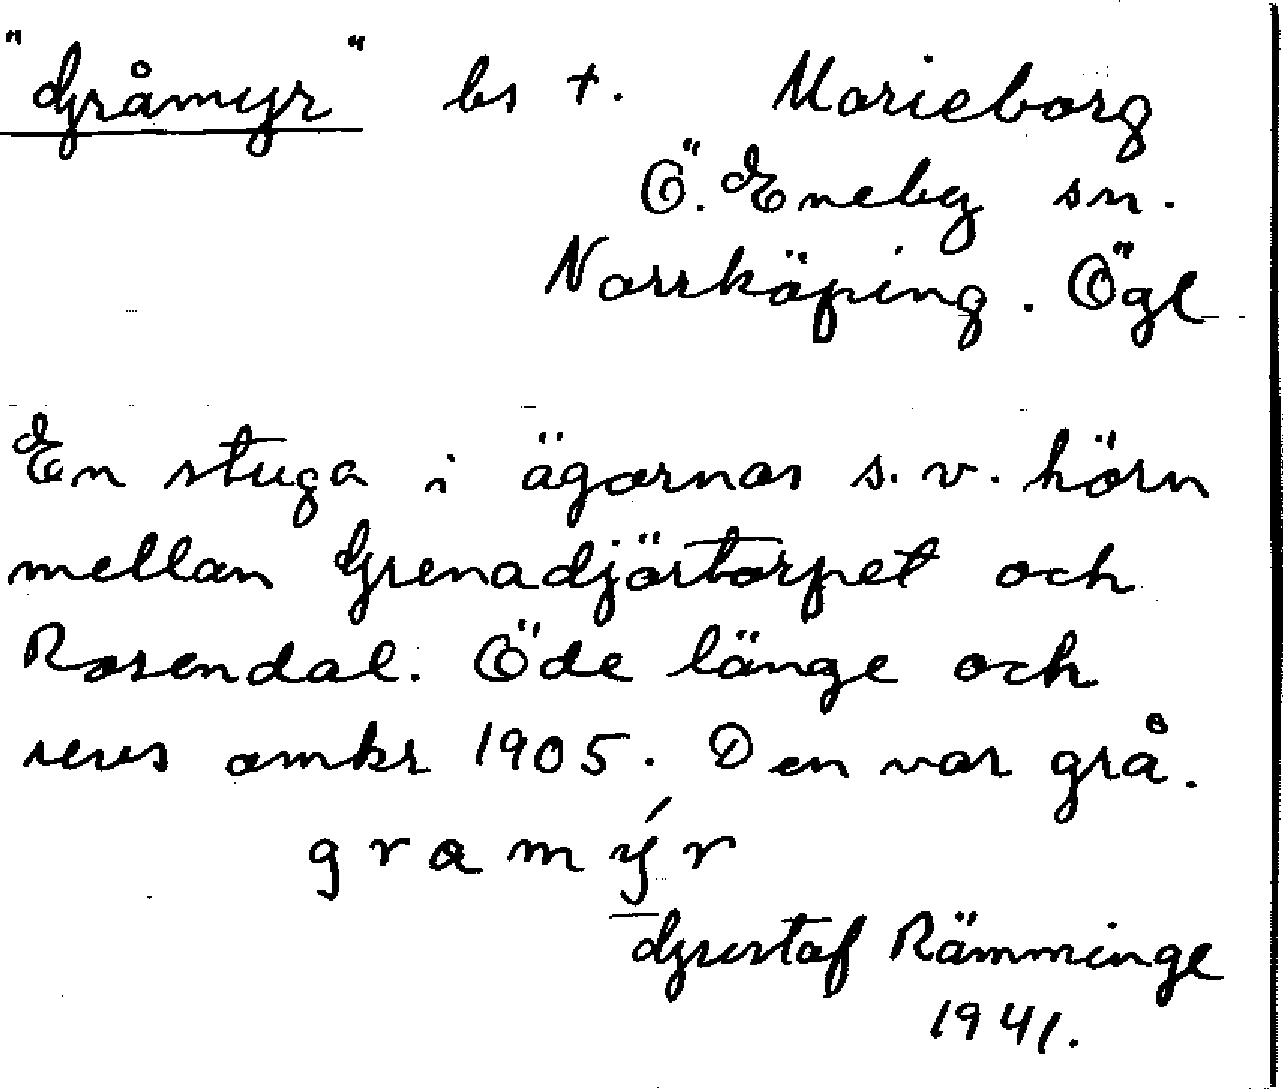 "Gråmyr" bs +. Marieborg
Ö. Eneby sn.
Norrköping. Ögl
En stuga i ägornas s.v. hörn
mellan Grenadjörtorpet och
Rosendal. Öde länge och
revs omkr 1905. Den var grå.
gramýr
Gustaf Rämminge
1941.